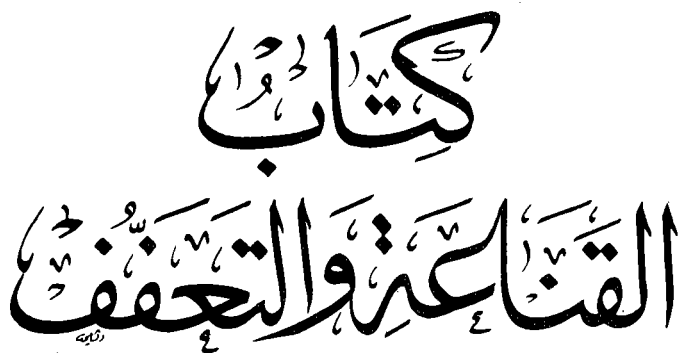 كِتَابُ
القَنَاعَةِ وَالتَّعَفُّفْ